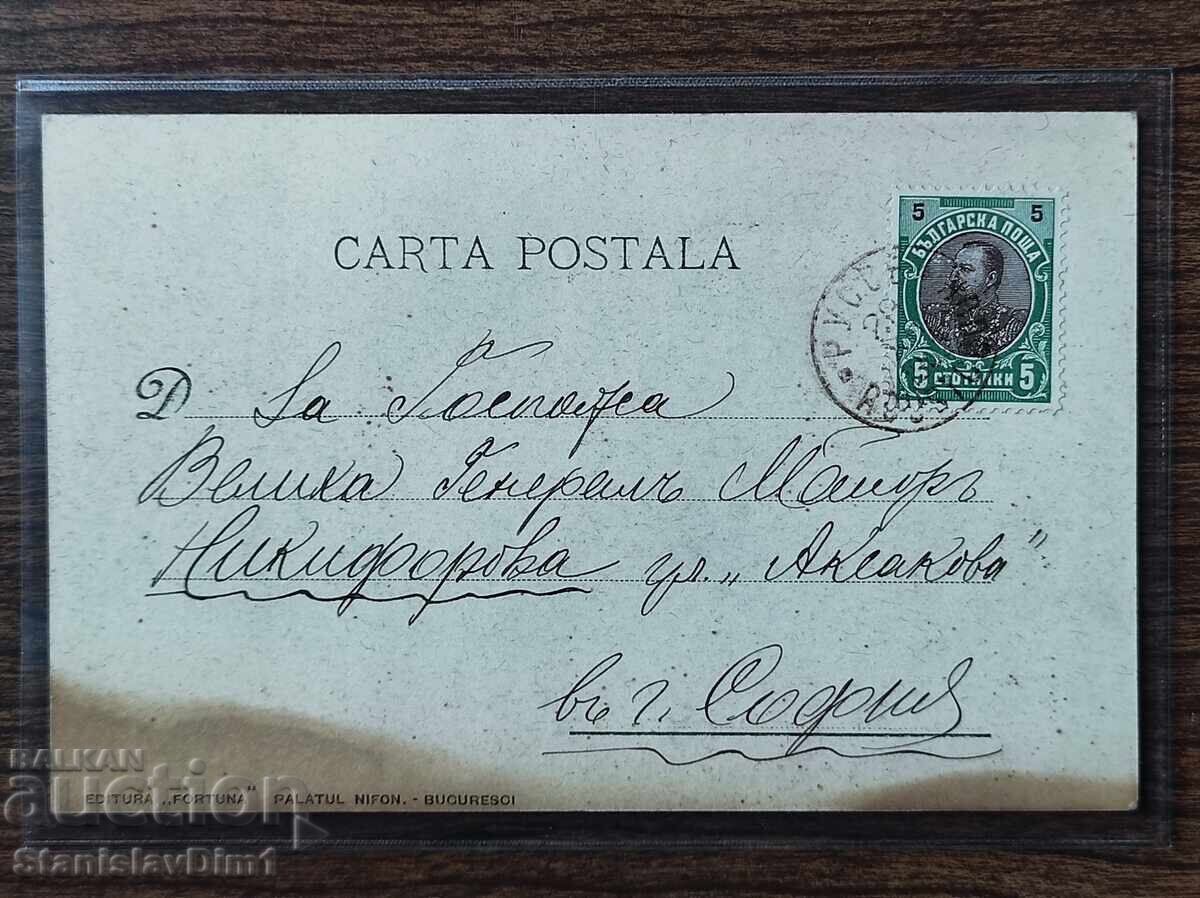 CARTA POSTALA
5 5
БЪЛГАРСКА ПОЩА
5 СТОТИНКИ 5
РУССЕ
Д За Госпожа
Велика Генералъ Маиоръ
Никифорова ул. „Аксакова"
въ г. София
BALKAN
auction
EDITURA „FORTUNA" PALATUL NIFON. - BUCURESCI
StanislavDim1